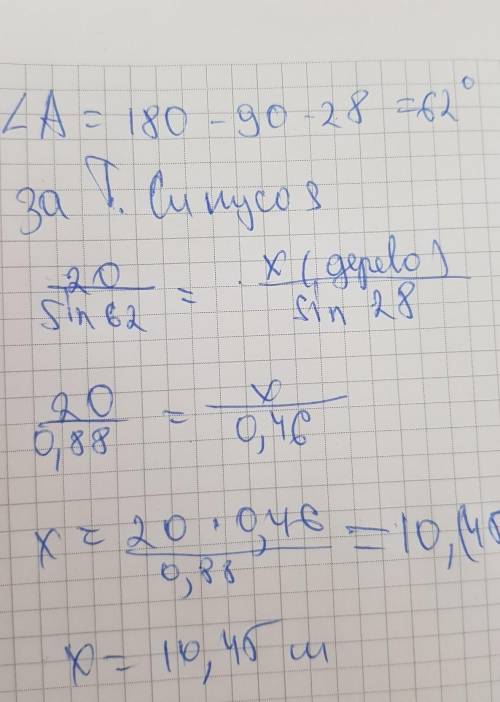 ∠A = 180 - 90 - 28 = 62°
За Т. Синусов
20/sin 62 = x (дерево)/sin 28
20/0,88 = x/0,46
x = 20 · 0,46/0,88 = 10,45
x = 10,45 м